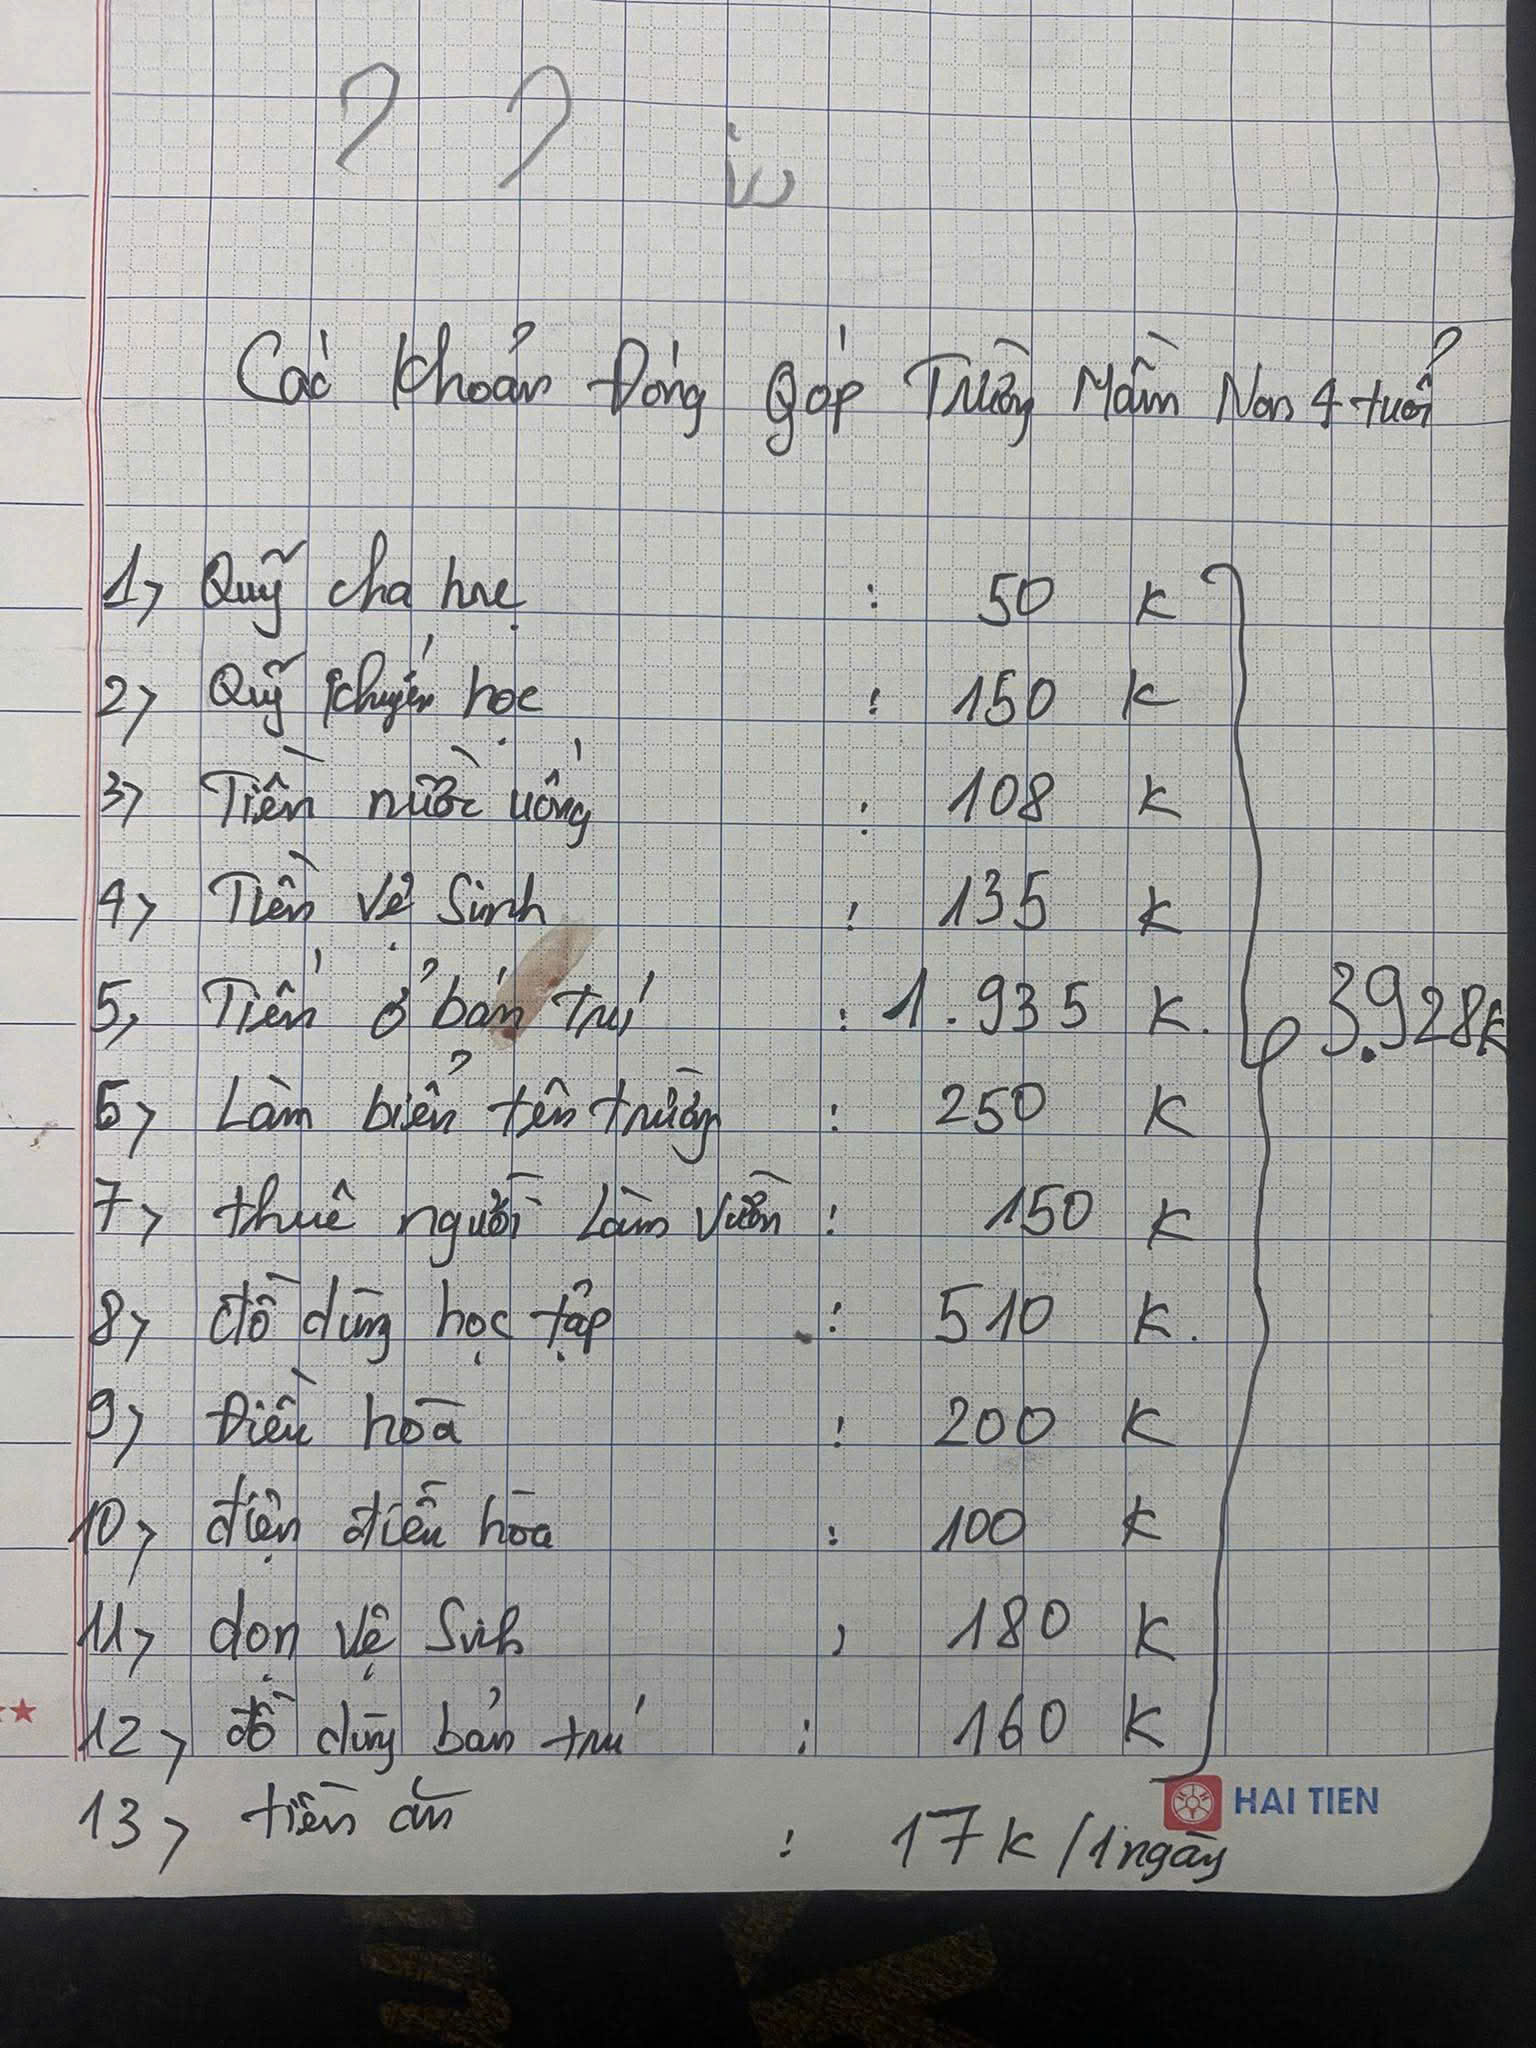 Các khoản Đóng góp Trường Mầm Non 4 tuổi
1, Quỹ cha mẹ : 50 K
2, Quỹ khuyến học : 150 K
3, Tiền nước uống : 108 K
4, Tiền vệ Sinh : 135 K
5, Tiền ở bán trú : 1.935 K.
3.928K
6, Làm biển tên trường : 250 K
7, thuê người làm vườn : 150 K
8, đồ dùng học tập : 510 K.
9, Điều hòa : 200 K
10, điện điều hòa : 100 K
11, dọn vệ Sinh , 180 K
12, đồ dùng bán trú : 160 K
HAI TIEN
13, tiền ăn : 17K/1ngày